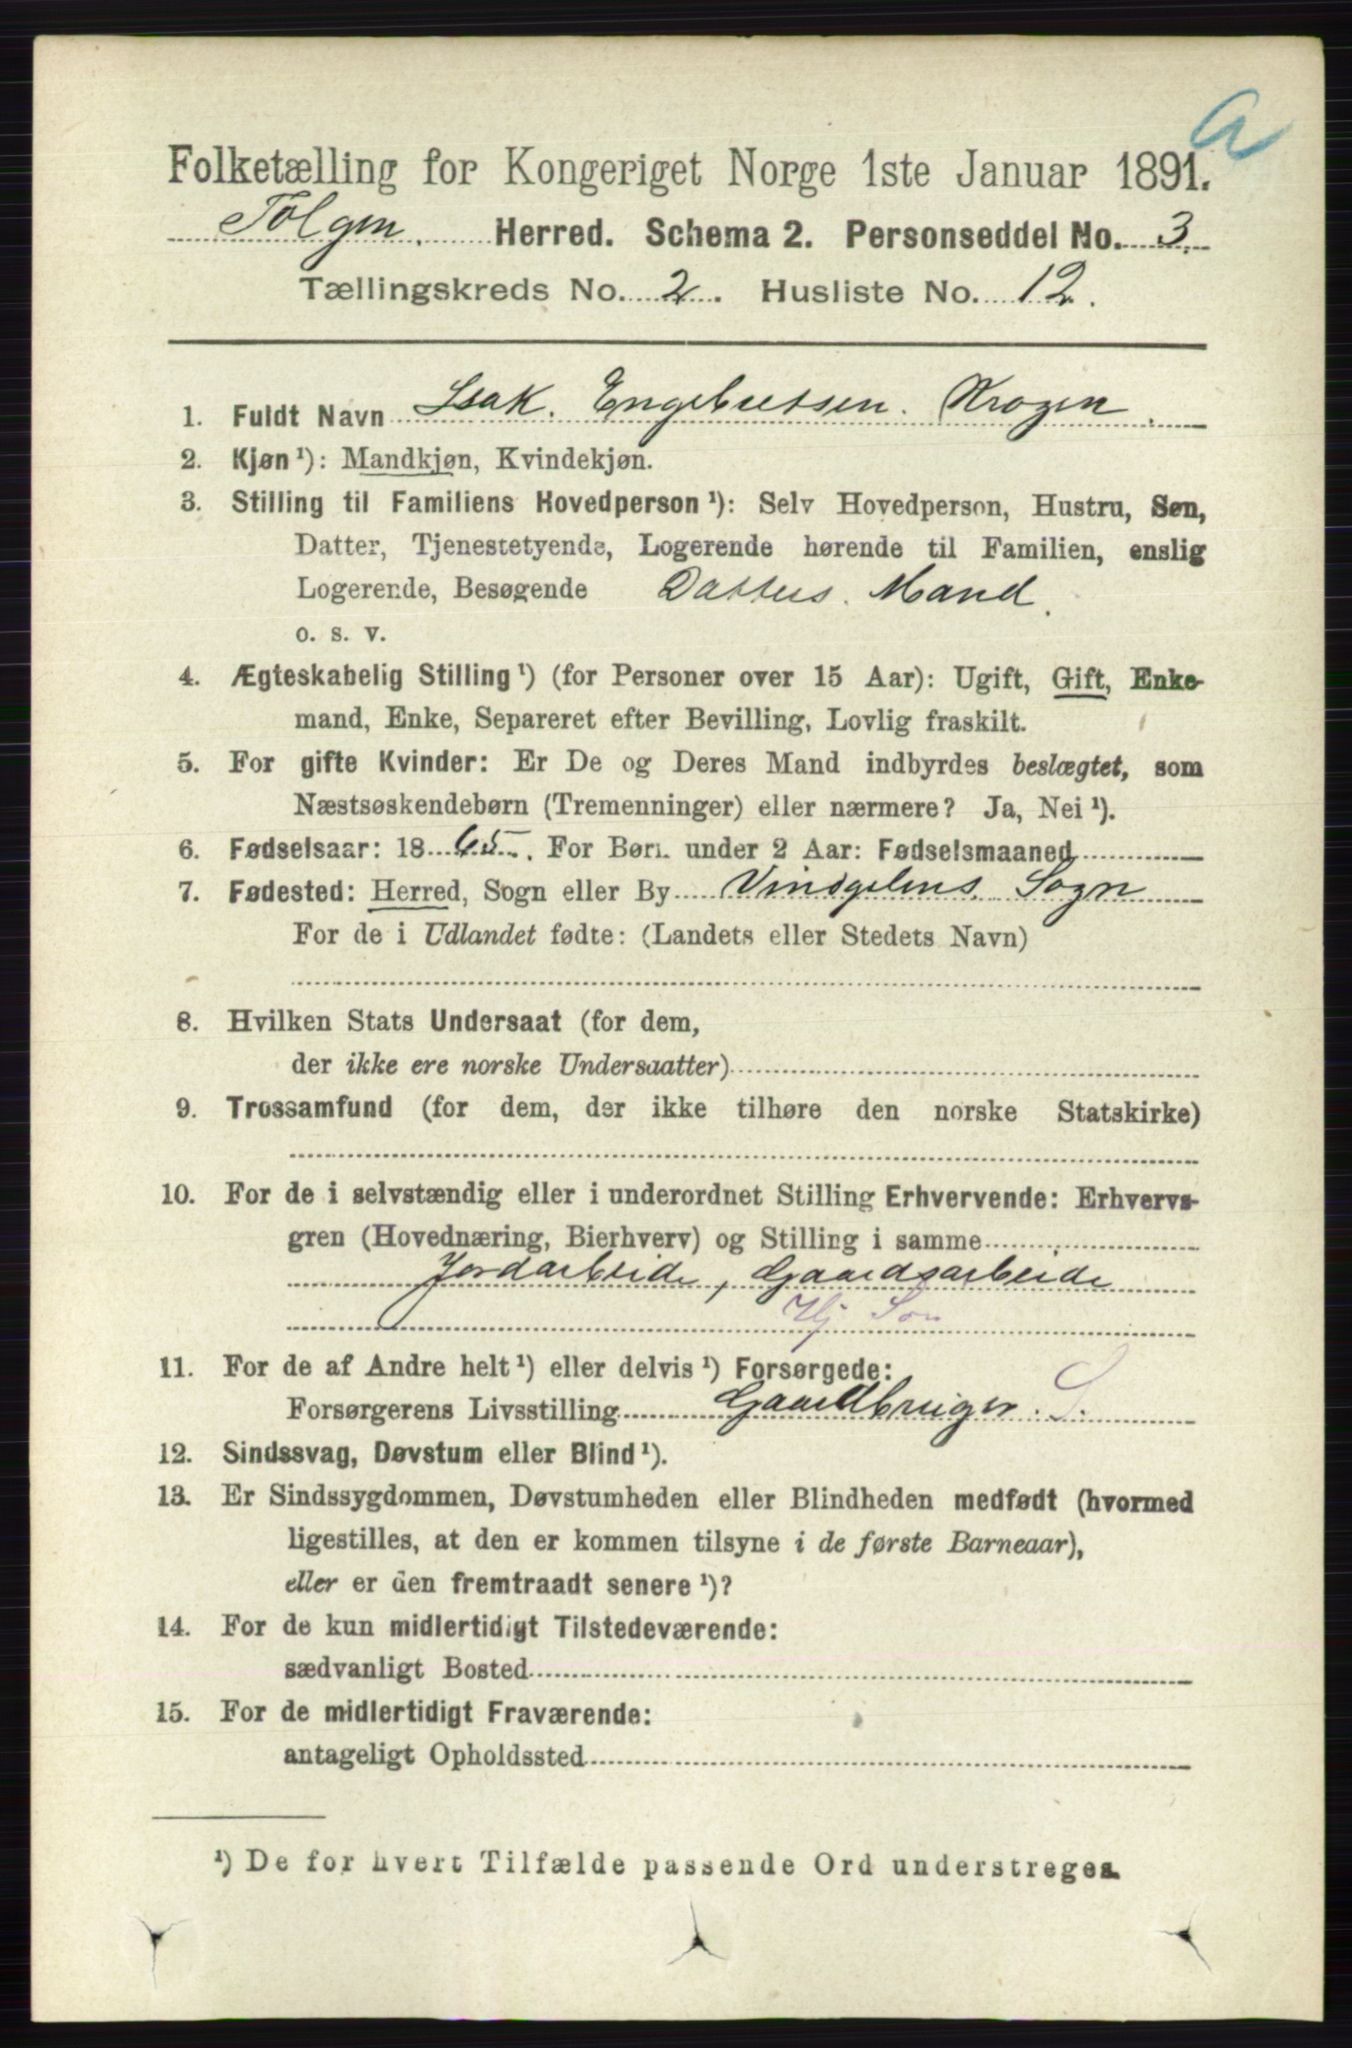 G
Folketælling for Kongeriget Norge 1ste Januar 1891.
Tolgen. Herred. Schema 2. Personseddel No. 3.
Tællingskreds No. 2. Husliste No. 12.
1. Fuldt Navn Isak. Engebretsen. Krogen.
2. Kjøn ¹): Mandkjøn, Kvindekjøn.
3. Stilling til Familiens Hovedperson ¹): Selv Hovedperson, Hustru, Søn,
Datter, Tjenestetyende, Logerende hørende til Familien, enslig
Logerende, Besøgende Datters. Mand.
o. s. v.
4. Ægteskabelig Stilling ¹) (for Personer over 15 Aar): Ugift, Gift, Enke-
mand, Enke, Separeret efter Bevilling, Lovlig fraskilt.
5. For gifte Kvinder: Er De og Deres Mand indbyrdes beslægtet, som
Næstsøskendebørn (Tremenninger) eller nærmere? Ja, Nei ¹).
6. Fødselsaar: 1865. For Børn under 2 Aar: Fødselsmaaned
7. Fødested: Herred, Sogn eller By Vindgelens. Sogn
For de i Udlandet fødte: (Landets eller Stedets Navn)
8. Hvilken Stats Undersaat (for dem,
der ikke ere norske Undersaatter)
9. Trossamfund (for dem, der ikke tilhøre den norske Statskirke)
10. For de i selvstændig eller i underordnet Stilling Erhvervende: Erhvervs-
gren (Hovednæring, Bierhverv) og Stilling i samme
Jordarbeide, Gaardsarbeide
Hj Søn
11. For de af Andre helt ¹) eller delvis ¹) Forsørgede:
Forsørgerens Livsstilling Gaardbruiger. S.
12. Sindssvag, Døvstum eller Blind ¹).
13. Er Sindssygdommen, Døvstumheden eller Blindheden medfødt (hvormed
ligestilles, at den er kommen tilsyne i de første Barneaar),
eller er den fremtraadt senere ¹)?
14. For de kun midlertidigt Tilstedeværende:
sædvanligt Bosted
15. For de midlertidigt Fraværende:
antageligt Opholdssted
¹) De for hvert Tilfælde passende Ord understreges.